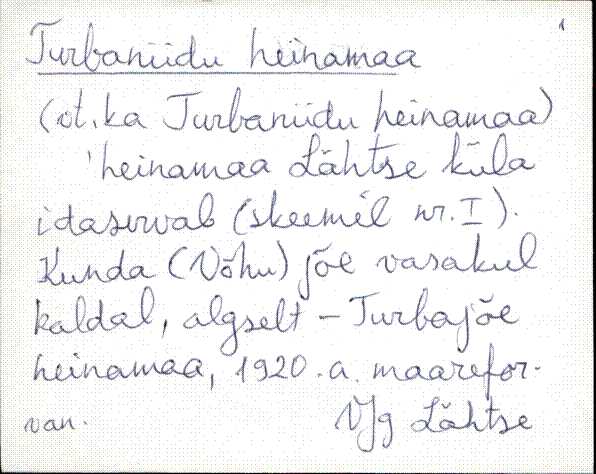 1
Turbaniidu heinamaa
(vt. ka Turbaniidu heinamaa)
'heinamaa Lähtse küla
idaserval (skeemil nr. I).
Kunda (Võhu) jõe vasakul
kaldal, algselt – Turbajõe
heinamaa, 1920. a. maarefor-
van. VJg Lähtse